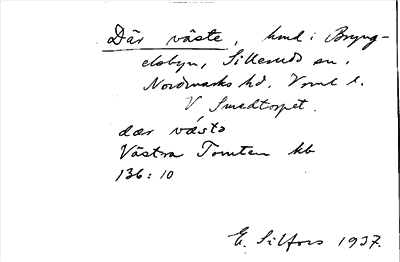 Där väste, hmd i Bryng-
elsbyn, Silleruds sn.
Nordmarks hd. Vrml l.
V Smedtorpet.
dær væsta
Västra Tomten kb
136:10
E. Silfors 1937.